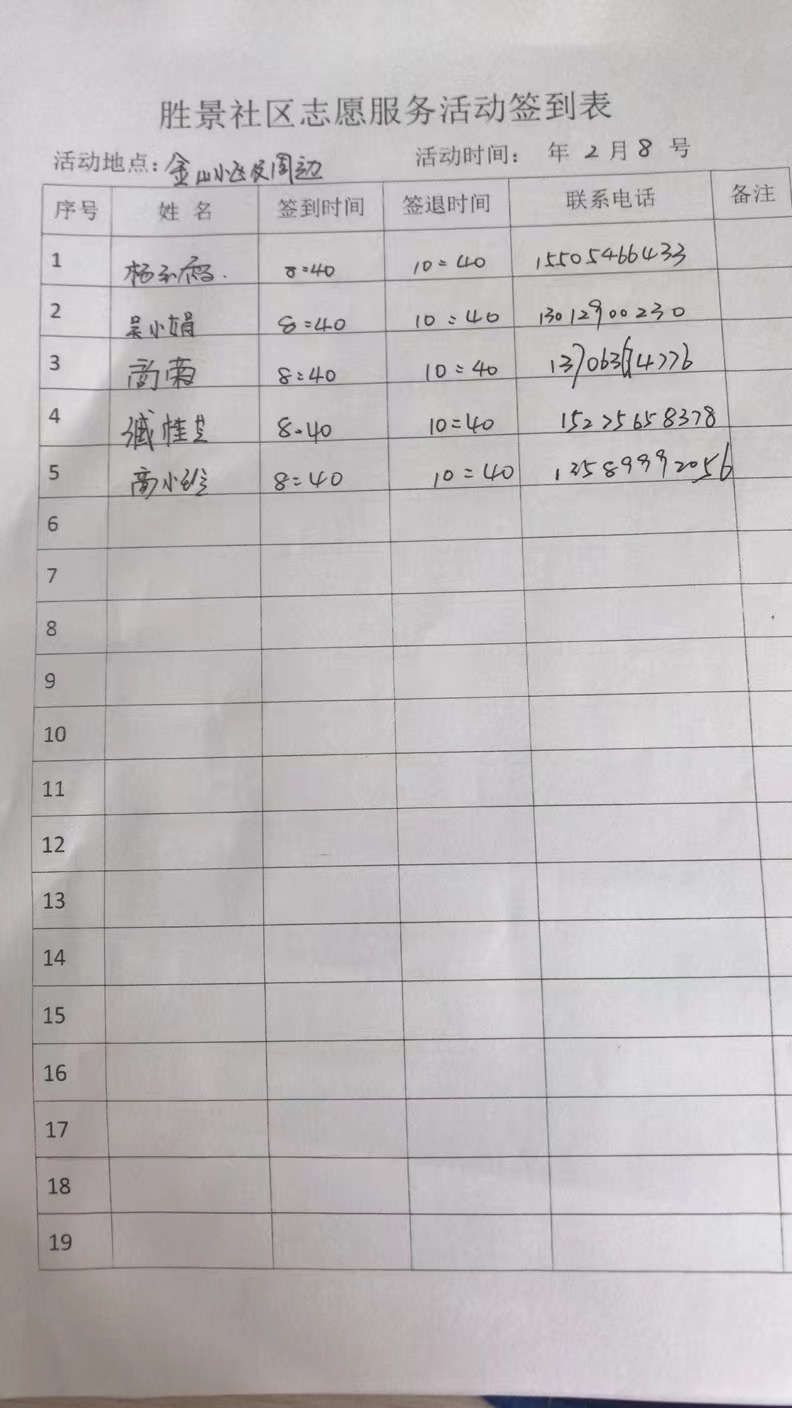 胜景社区志愿服务活动签到表
活动地点：金山小区及周边 活动时间： 年 2 月 8 号
序号 姓 名 签到时间 签退时间 联系电话 备注
1 杨 8:40 10:40 15505466433
2 吴小娟 8:40 10:40 13012900230
3 8:40 10:40
4 8:40 10:40 15275658378
5 高小 8:40 10:40 13589992056
6
7
8
9
10
11
12
13
14
15
16
17
18
19